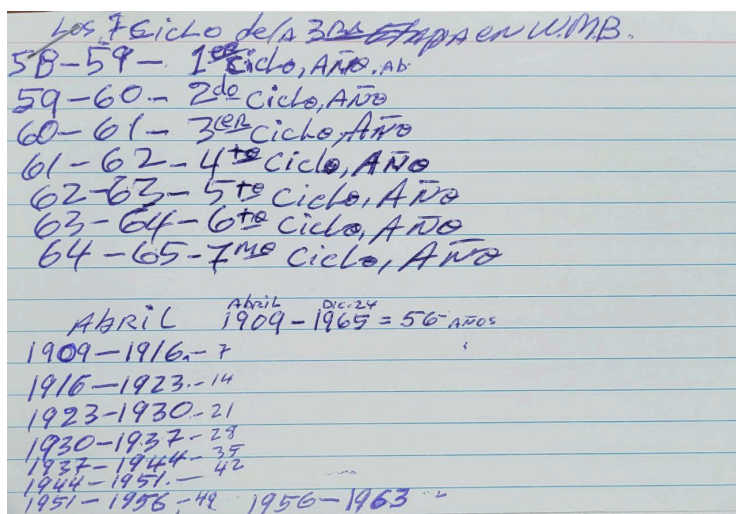 Los 7 Ciclo de la 3ra Etapa en W.M.B.
58-59- 1er Ciclo, Año. Ab
59-60- 2do Ciclo, Año
60-61- 3er Ciclo, Año
61-62-4to Ciclo, Año
62-63-5to Ciclo, Año
63-64-6to Ciclo, Año
64-65-7mo Ciclo, Año
Abril Dic. 24
ABRIL 1909-1965=56 AÑOS
1909-1916.-7
1916-1923.-14
1923-1930-21
1930-1937-28
1937-1944-35
1944-1951.-42
1951-1956-49 1956-1963